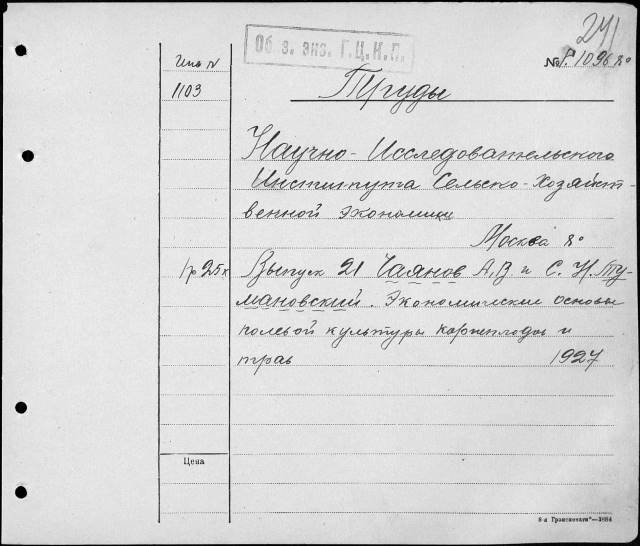 241
Об з. экз. Г.Ц.К.П.
Инв N
№ Р. 1096 8°
1103
Труды
Научно-Исследовательского
Института Сельско-Хозяйст-
венной экономии
Москва 8°
1р 25к
Выпуск 21 Чаянов А.В и С. Н. Ту-
мановский. Экономические основы
полевой культуры корнеплодов и
трав 1927
Цена
"—3884